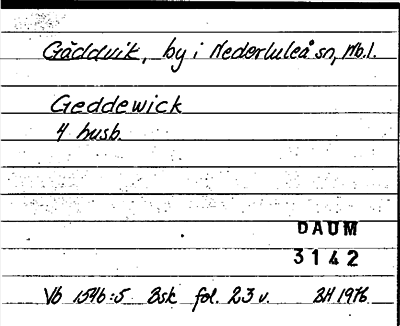 Gäddvik, by i Nederluleå sn, Nb.l.
Geddewick
4 husb.
DAUM
3142
Vb 1546:5 Bsk fol. 23 v. BH 1976